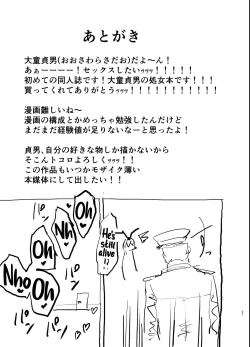 あとがき
大童貞男(おおさわらさだお)だよ〜ん！
あぁーーーー！セックスしたいｯｯｯ！！！！！
初めての同人誌です！大童貞男の処女本です！！！！
買ってくれてありがとうｯｯｯ！！！！！！
漫画難しいね〜
漫画の構成とかめっちゃ勉強したんだけど
まだまだ経験値が足りないなーと思ったよ！
貞男、自分の好きな物しか描かないから
そこんトコロよろしくｯｯｯ！！
この作品もいつかモザイク薄い
本媒体にして出したい！！
パン
パン
Oh
Nh
Oh
Nho
Oh
He's
still
alive
!?
パン
パン
パン